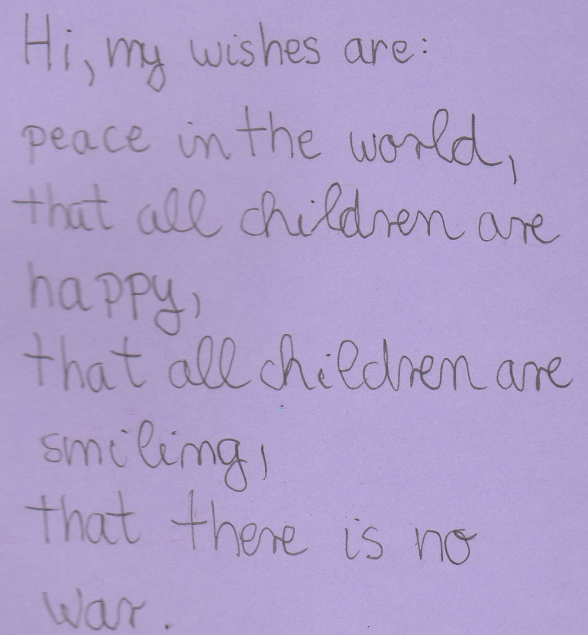 Hi, my wishes are:
peace in the world,
that all children are
happy,
that all children are
smiling,
that there is no
war.